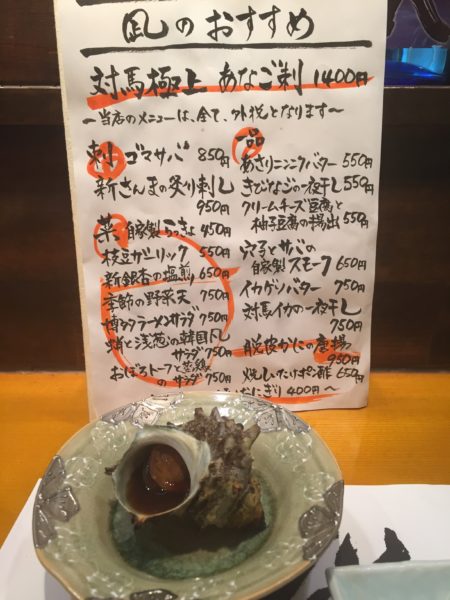 凪のおすすめ
対馬極上 あなご刺 1400円
〜当店のメニューは、全て、外税となります〜
刺 ゴマサバ 850円
新さんまの炙り刺し
950円
菜 自家製らっきょ 450円
枝豆ガーリック 550円
新銀杏の塩煎り 650円
季節の野菜天 750円
博多ラーメンサラダ 750円
蛸と浅葱の韓国風
サラダ 750円
おぼろトーフと蒸し鶏
のサラダ 750円
一品
あさりニンニクバター 550円
きびなごの一夜干し 550円
クリームチーズ豆腐と
柚子豆腐の揚出 550円
穴子とサバの
自家製スモーク 650円
イカゲソバター 750円
対馬イカの一夜干し
750円
脱皮かにの唐揚
950円
焼しいたけポン酢 650円
おにぎり 400円〜